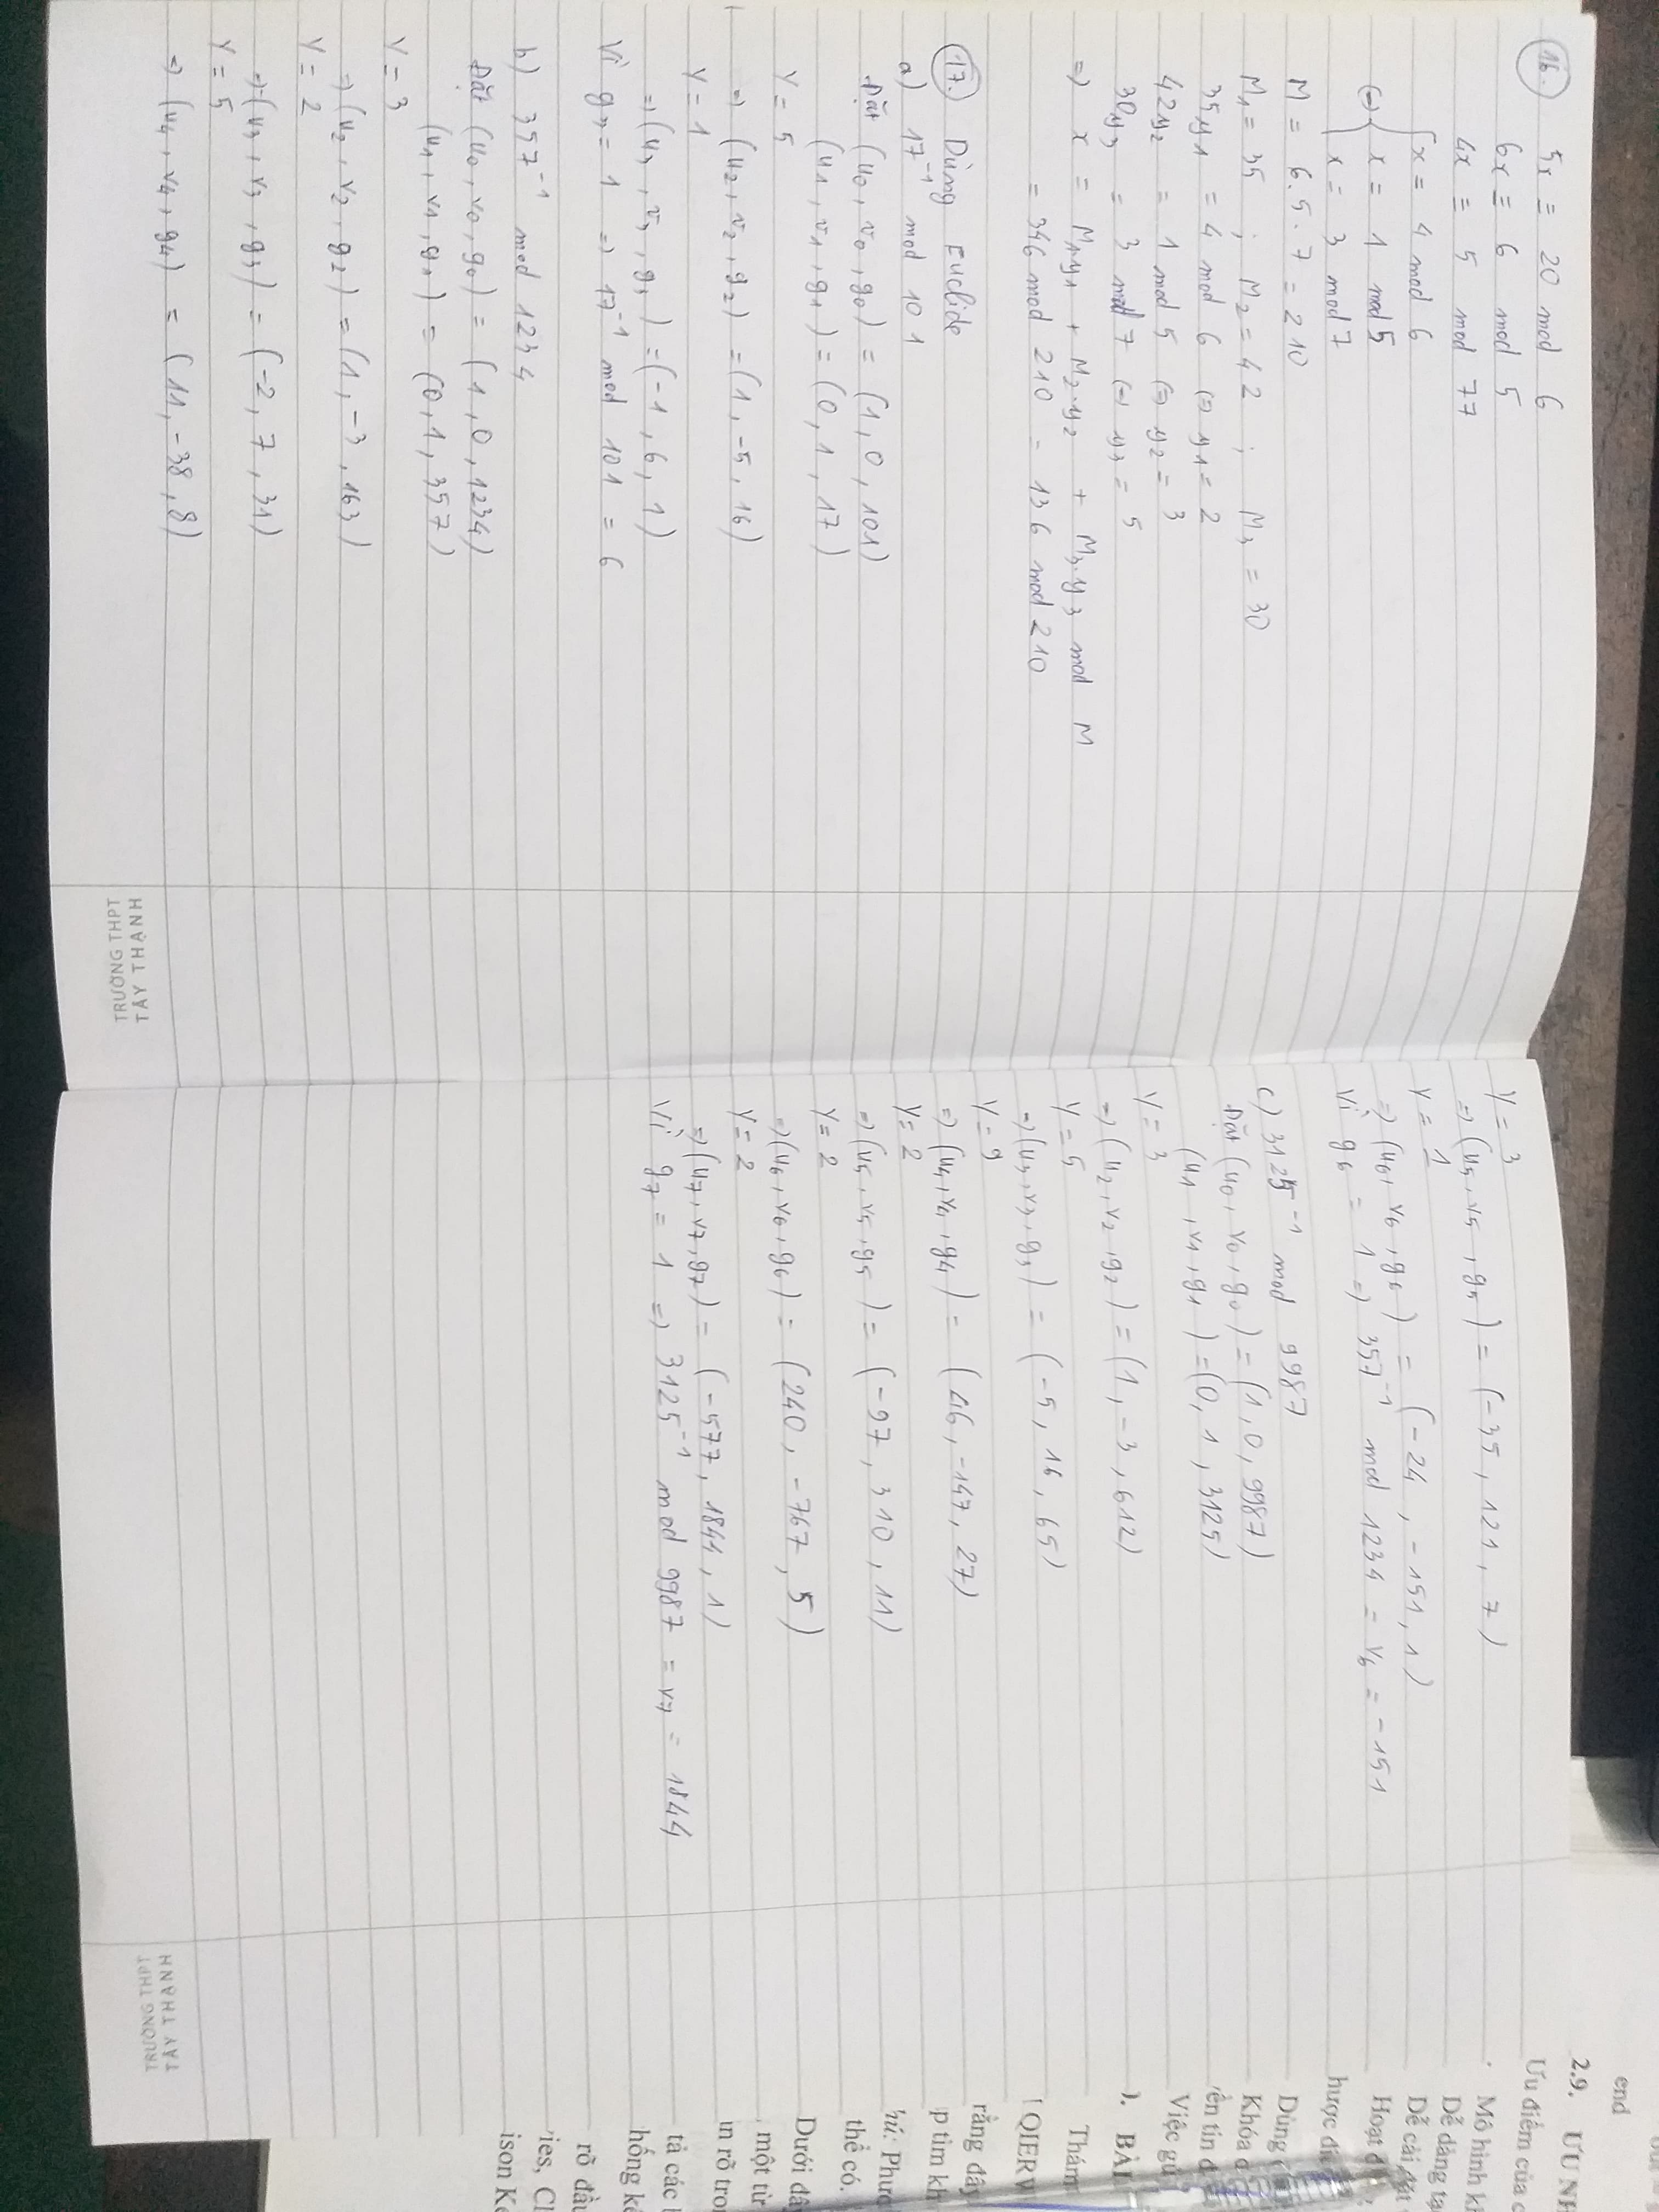 16.
5x ≡ 20 mod 6
6x ≡ 6 mod 5
4x ≡ 5 mod 77
x = 4 mod 6
(=) x = 1 mod 5
x = 3 mod 7
M = 6.5.7 = 210
M1 = 35 ; M2 = 42 ; M3 = 30
35y1 = 4 mod 6 (=) y1 = 2
42y2 = 1 mod 5 (=) y2 = 3
30y3 = 3 mod 7 (=) y3 = 5
=) x = M1y1 + M2.y2 + M3.y3 mod M
= 346 mod 210 = 136 mod 210
17. Dùng Euclide
a) 17⁻¹ mod 101
Đặt (u0, v0, g0) = (1, 0, 101)
(u1, v1, g1) = (0, 1, 17)
Y = 5
=) (u2, v2, g2) = (1, -5, 16)
Y = 1
=) (u3, v3, g3) = (-1, 6, 1)
Vì g3 = 1 => 17⁻¹ mod 101 = 6
b) 357⁻¹ mod 1234
Đặt (u0, v0, g0) = (1, 0, 1234)
(u1, v1, g1) = (0, 1, 357)
Y = 3
=) (u2, v2, g2) = (1, -3, 163)
Y = 2
=) (u3, v3, g3) = (-2, 7, 31)
Y = 5
=) (u4, v4, g4) = (11, -38, 8)
TRƯỜNG THPT
TÂY THẠNH
Y = 3
=) (u5, v5, g5) = (-35, 121, 7)
Y = 1
=) (u6, v6, g6) = (-24, -151, 1)
Vì g6 = 1 =) 357⁻¹ mod 1234 = v6 = -151
c) 3125⁻¹ mod 9987
Đặt (u0, v0, g0) = (1, 0, 9987)
(u1, v1, g1) = (0, 1, 3125)
Y = 3
=) (u2, v2, g2) = (1, -3, 612)
Y = 5
=) (u3, v3, g3) = (-5, 16, 65)
Y = 9
=) (u4, v4, g4) = (46, -147, 27)
Y = 2
=) (u5, v5, g5) = (-97, 310, 11)
Y = 2
=) (u6, v6, g6) = (240, -767, 5)
Y = 2
=) (u7, v7, g7) = (-577, 1844, 1)
Vì g7 = 1 => 3125⁻¹ mod 9987 = v7 = 1844
TRƯỜNG THPT
TÂY THẠNH
end
2.9. ƯU NH
Ưu điểm của c
Mô hình k
Dễ dàng tạ
Dễ cài đặt
Hoạt đ
hược đi
Dùng
Khóa
ền tin đ
Việc gử
). BÀI
Thám
QIERW
rằng đây
p tìm kh
hú: Phươ
thể có.
Dưới đâ
một từ
ìn rõ tron
tả các
hống k
rõ đầu
ies, Cl
ison K